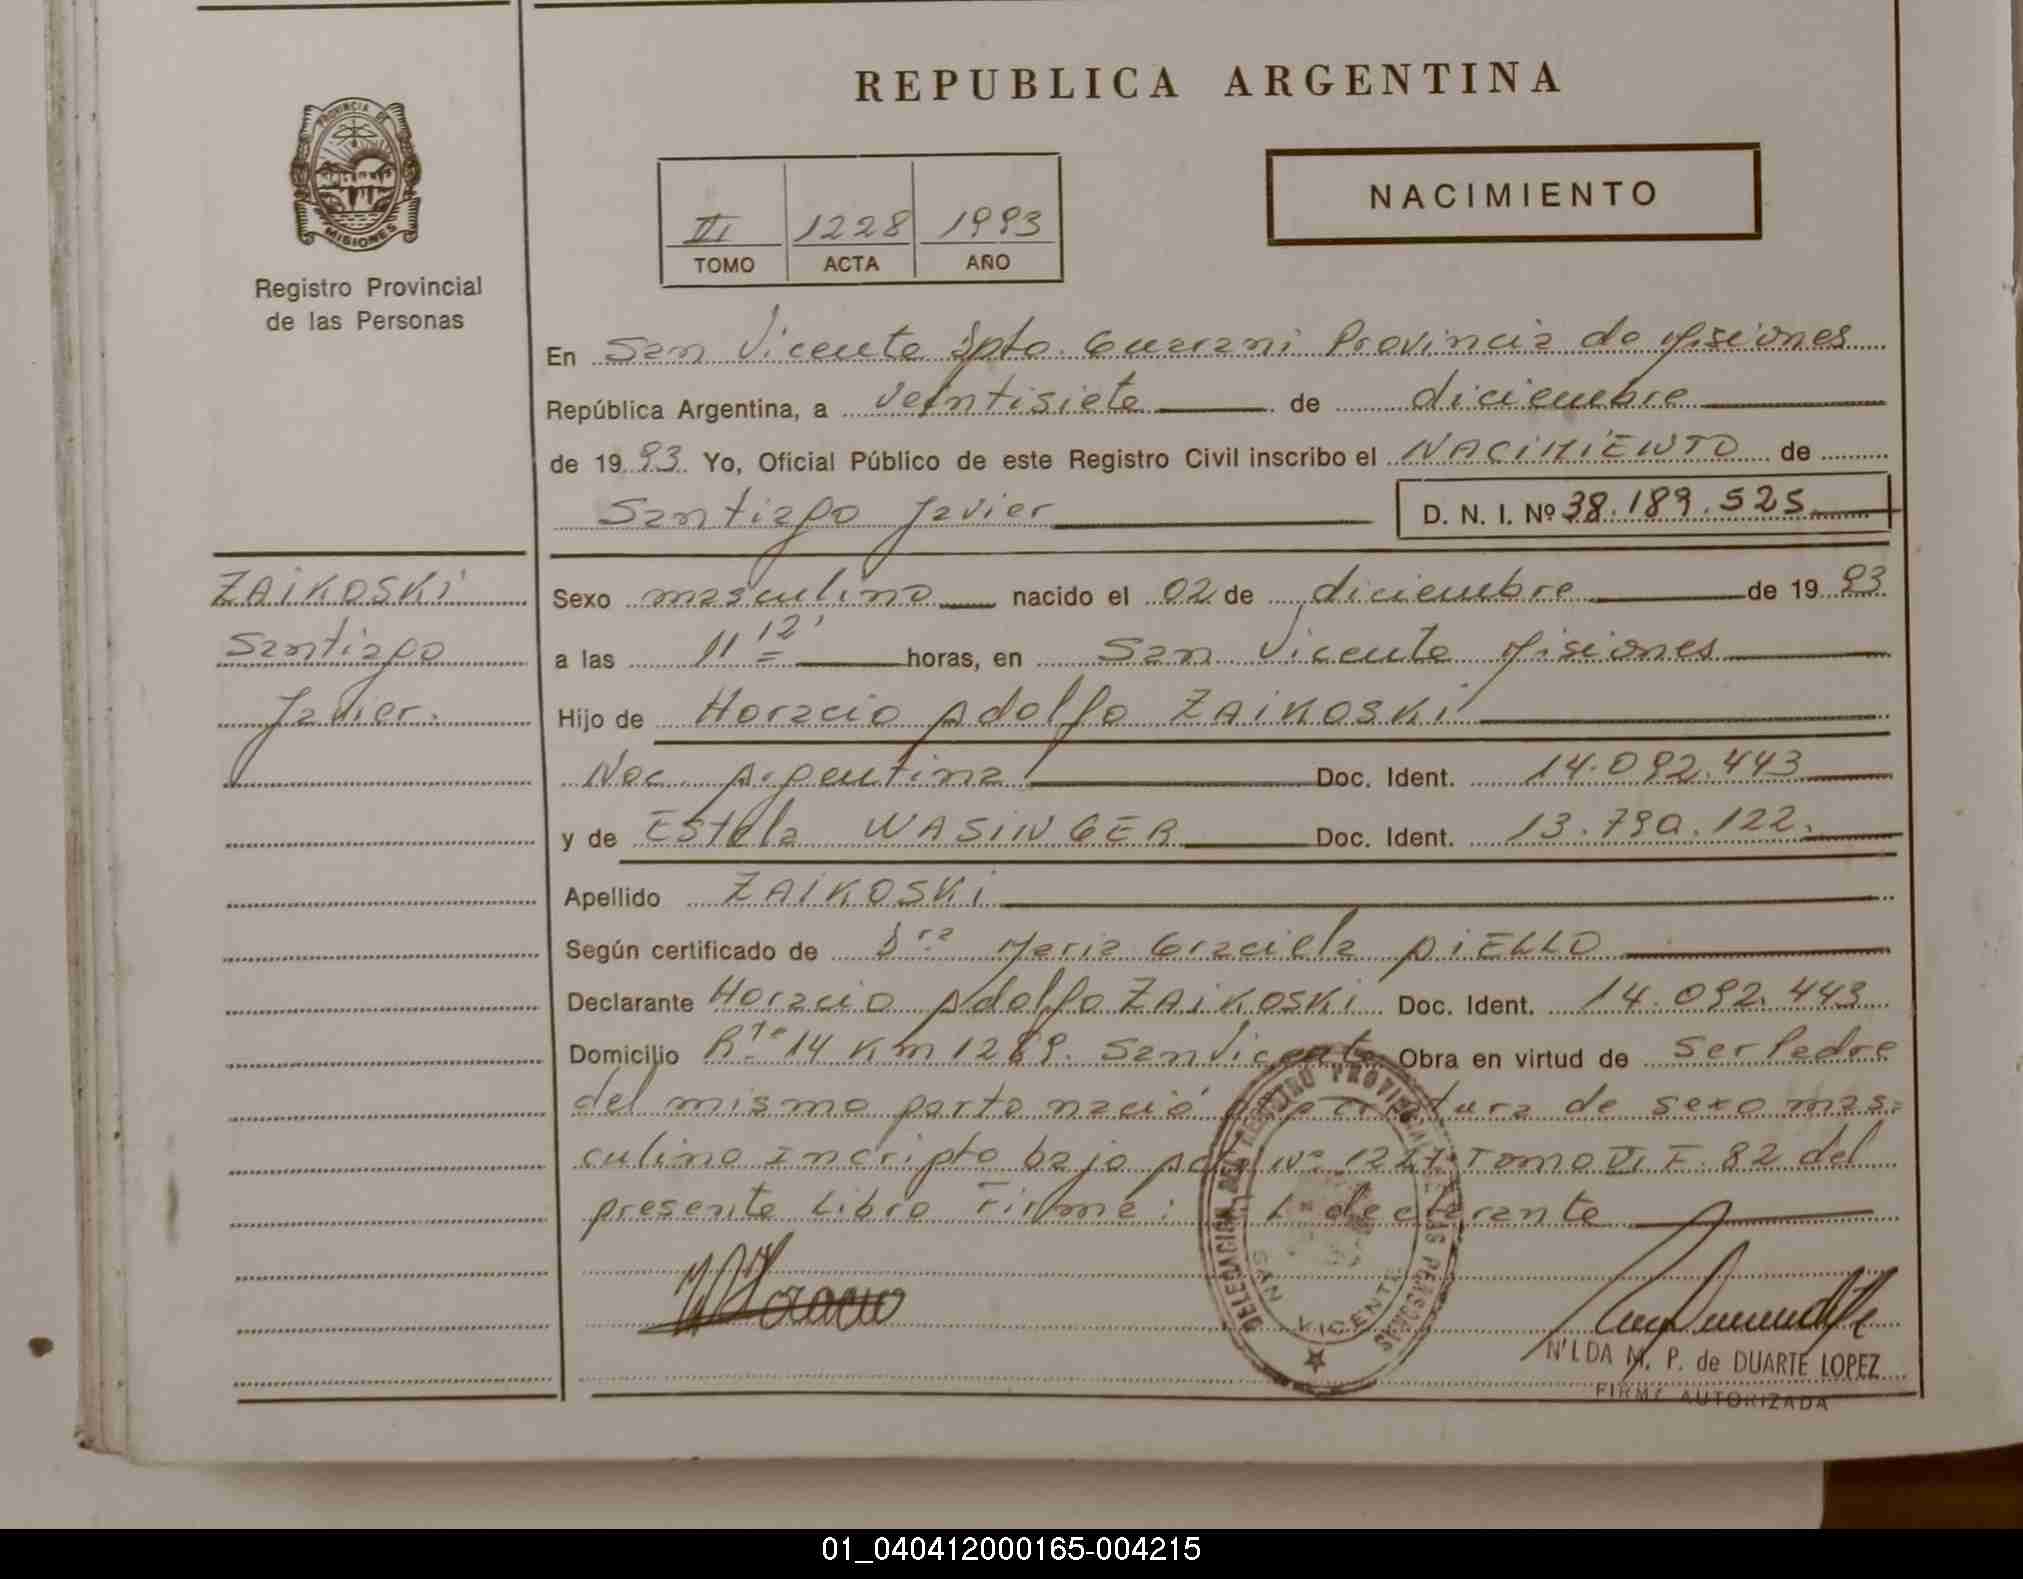 REPUBLICA ARGENTINA
PROVINCIA DE
MISIONES
Registro Provincial
de las Personas
NACIMIENTO
VI 1228 1993
TOMO ACTA AÑO
En San Vicente Dpto. Guarani Provincia de Misiones
República Argentina, a veintisiete de diciembre
de 1993 Yo, Oficial Público de este Registro Civil inscribo el NACIMIENTO de
Santiago Javier D. N. I. Nº 38.189.525
ZAIKOSKI
Santiago
Javier.
Sexo masculino nacido el 02 de diciembre de 1993
a las 11 12' horas, en San Vicente Misiones
Hijo de Horacio Adolfo ZAIKOSKI
Nac. Argentina Doc. Ident. 14.092.443
y de Estela WASINGER Doc. Ident. 13.790.122.
Apellido ZAIKOSKI
Según certificado de Dra Maria Graciela DIELLO
Declarante Horacio Adolfo ZAIKOSKI Doc. Ident. 14.092.443
Domicilio Rta 14 Km 1289. San Vicente Obra en virtud de ser Padre
del mismo parto nació de sexo mas=
culino Incripto bajo Acta Nº 1227 Tomo VI F. 82 del
presente Libro Firma: declarante
DELEGACION DEL REGISTRO PROVINCIAL DE LAS PERSONAS
SAN VICENTE
NILDA M. P. de DUARTE LOPEZ
FIRMA AUTORIZADA
01_040412000165-004215